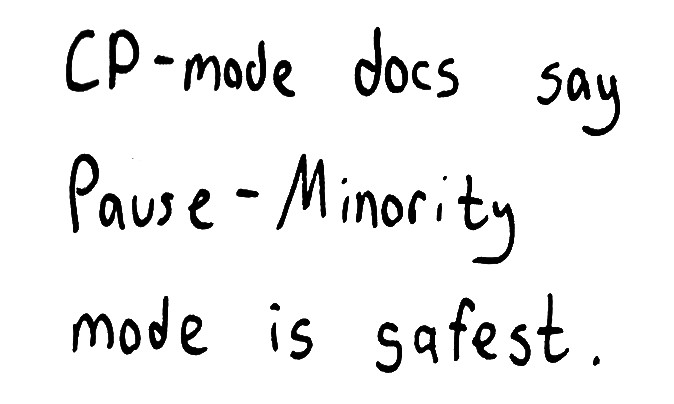 CP-mode docs say
Pause-Minority
mode is safest.